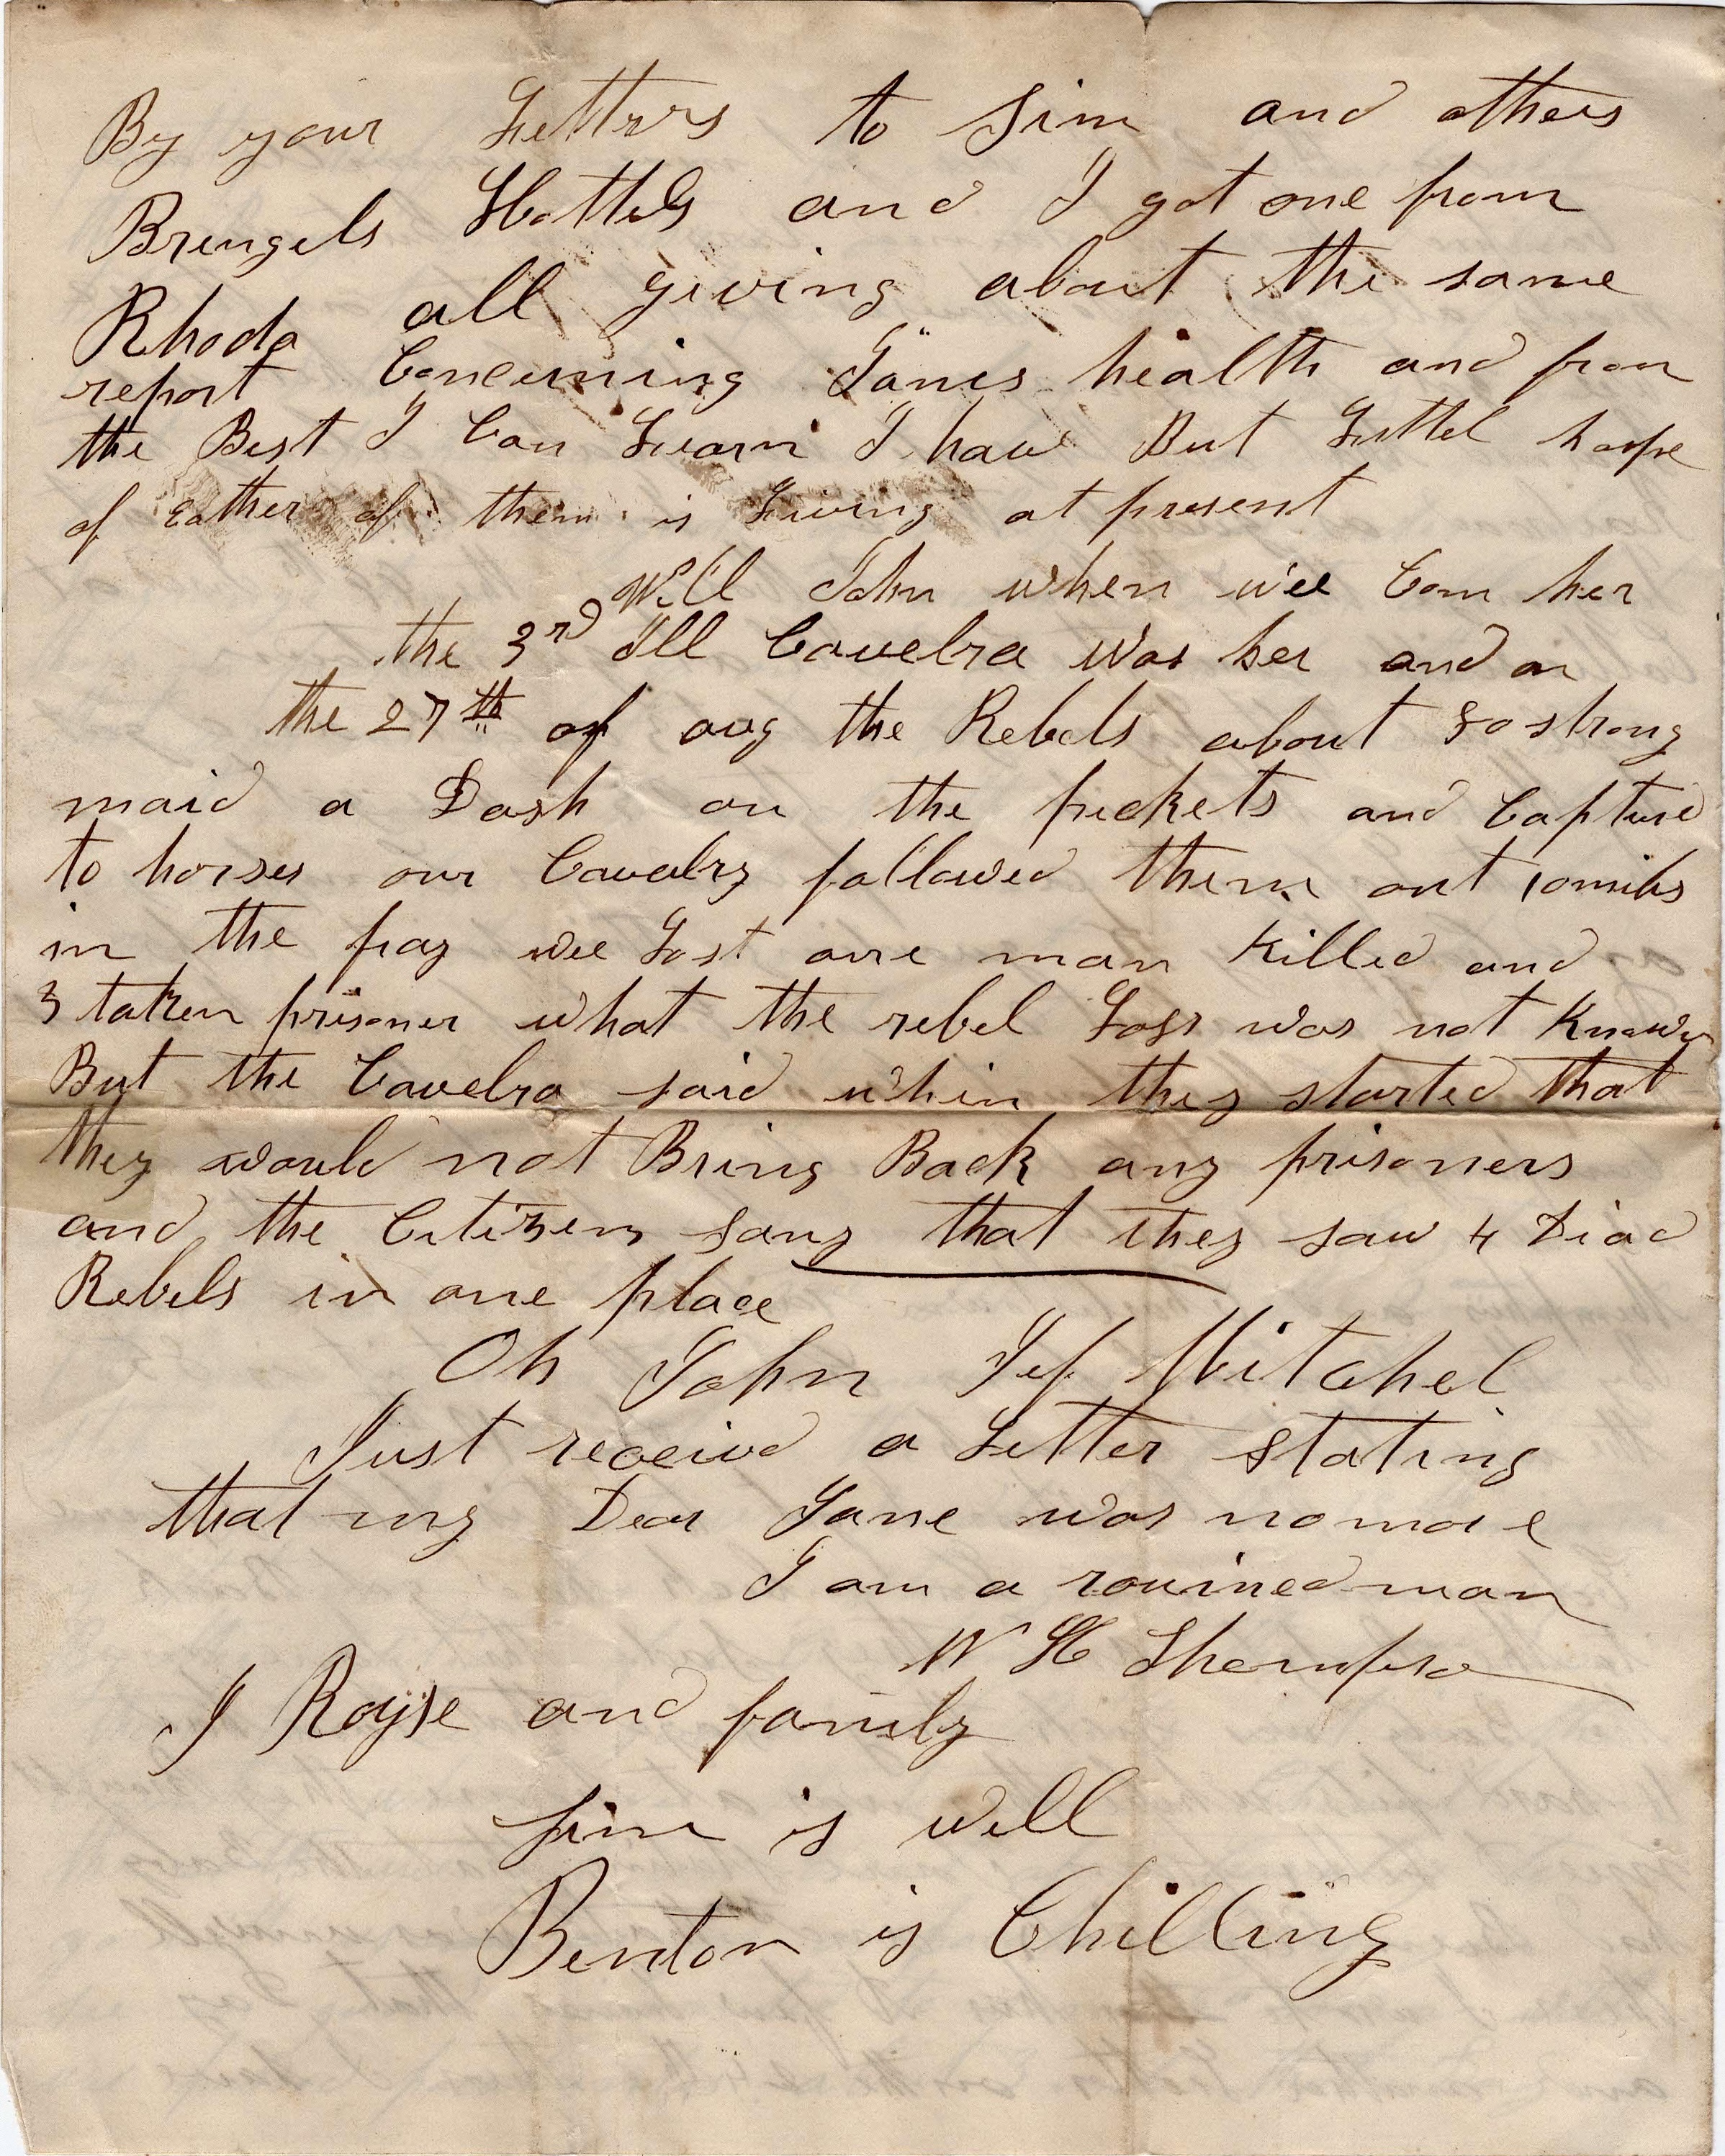 By your Letters to Sim and others
Brengels Hottels and I got one from
Rhoda all giving about the same
report Concerning Janes health and from
the Best I Can Learn I have But Littel hope
of Eather of them is Living at present
Well John when wee Com her
the 3rd Ill Cavelra was her and on
the 27th of aug the Rebels about 50 strong
maid a Dash on the pickets and Capture
to horses our Cavalry followed them out 10 miles
in the fray wee Lost one man Killed and
3 taken prisoner what the rebel Loss was not Known
But the Cavelra said when they started that
they would not Bring Back any prisoners
and the Citizens says that they saw 4 Dead
Rebels in one place
Oh John Jef Mitchel
Just receivd a Letter stating
that my Dear Jane was no more
I am a rouined man
W H Thompson
J Royse and family
Sim is well
Benton is Chilling